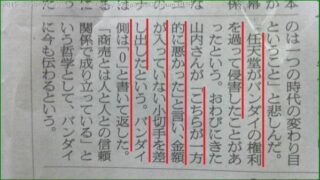 本のは一つの時代の変わり目
ということ」と悲しんだ。
任天堂がバンダイの権利
を過って侵害したことがあ
ったという。おわびにきた
山内さんが「こちらが一方
的に悪かった」と言い、金額
が入っていない小切手を差
し出したという。バンダイ
側は「0」と書いて返した。
「商売とは人と人との信頼
関係で成り立っている」と
いう哲学として、バンダイ
に今も伝わるという。